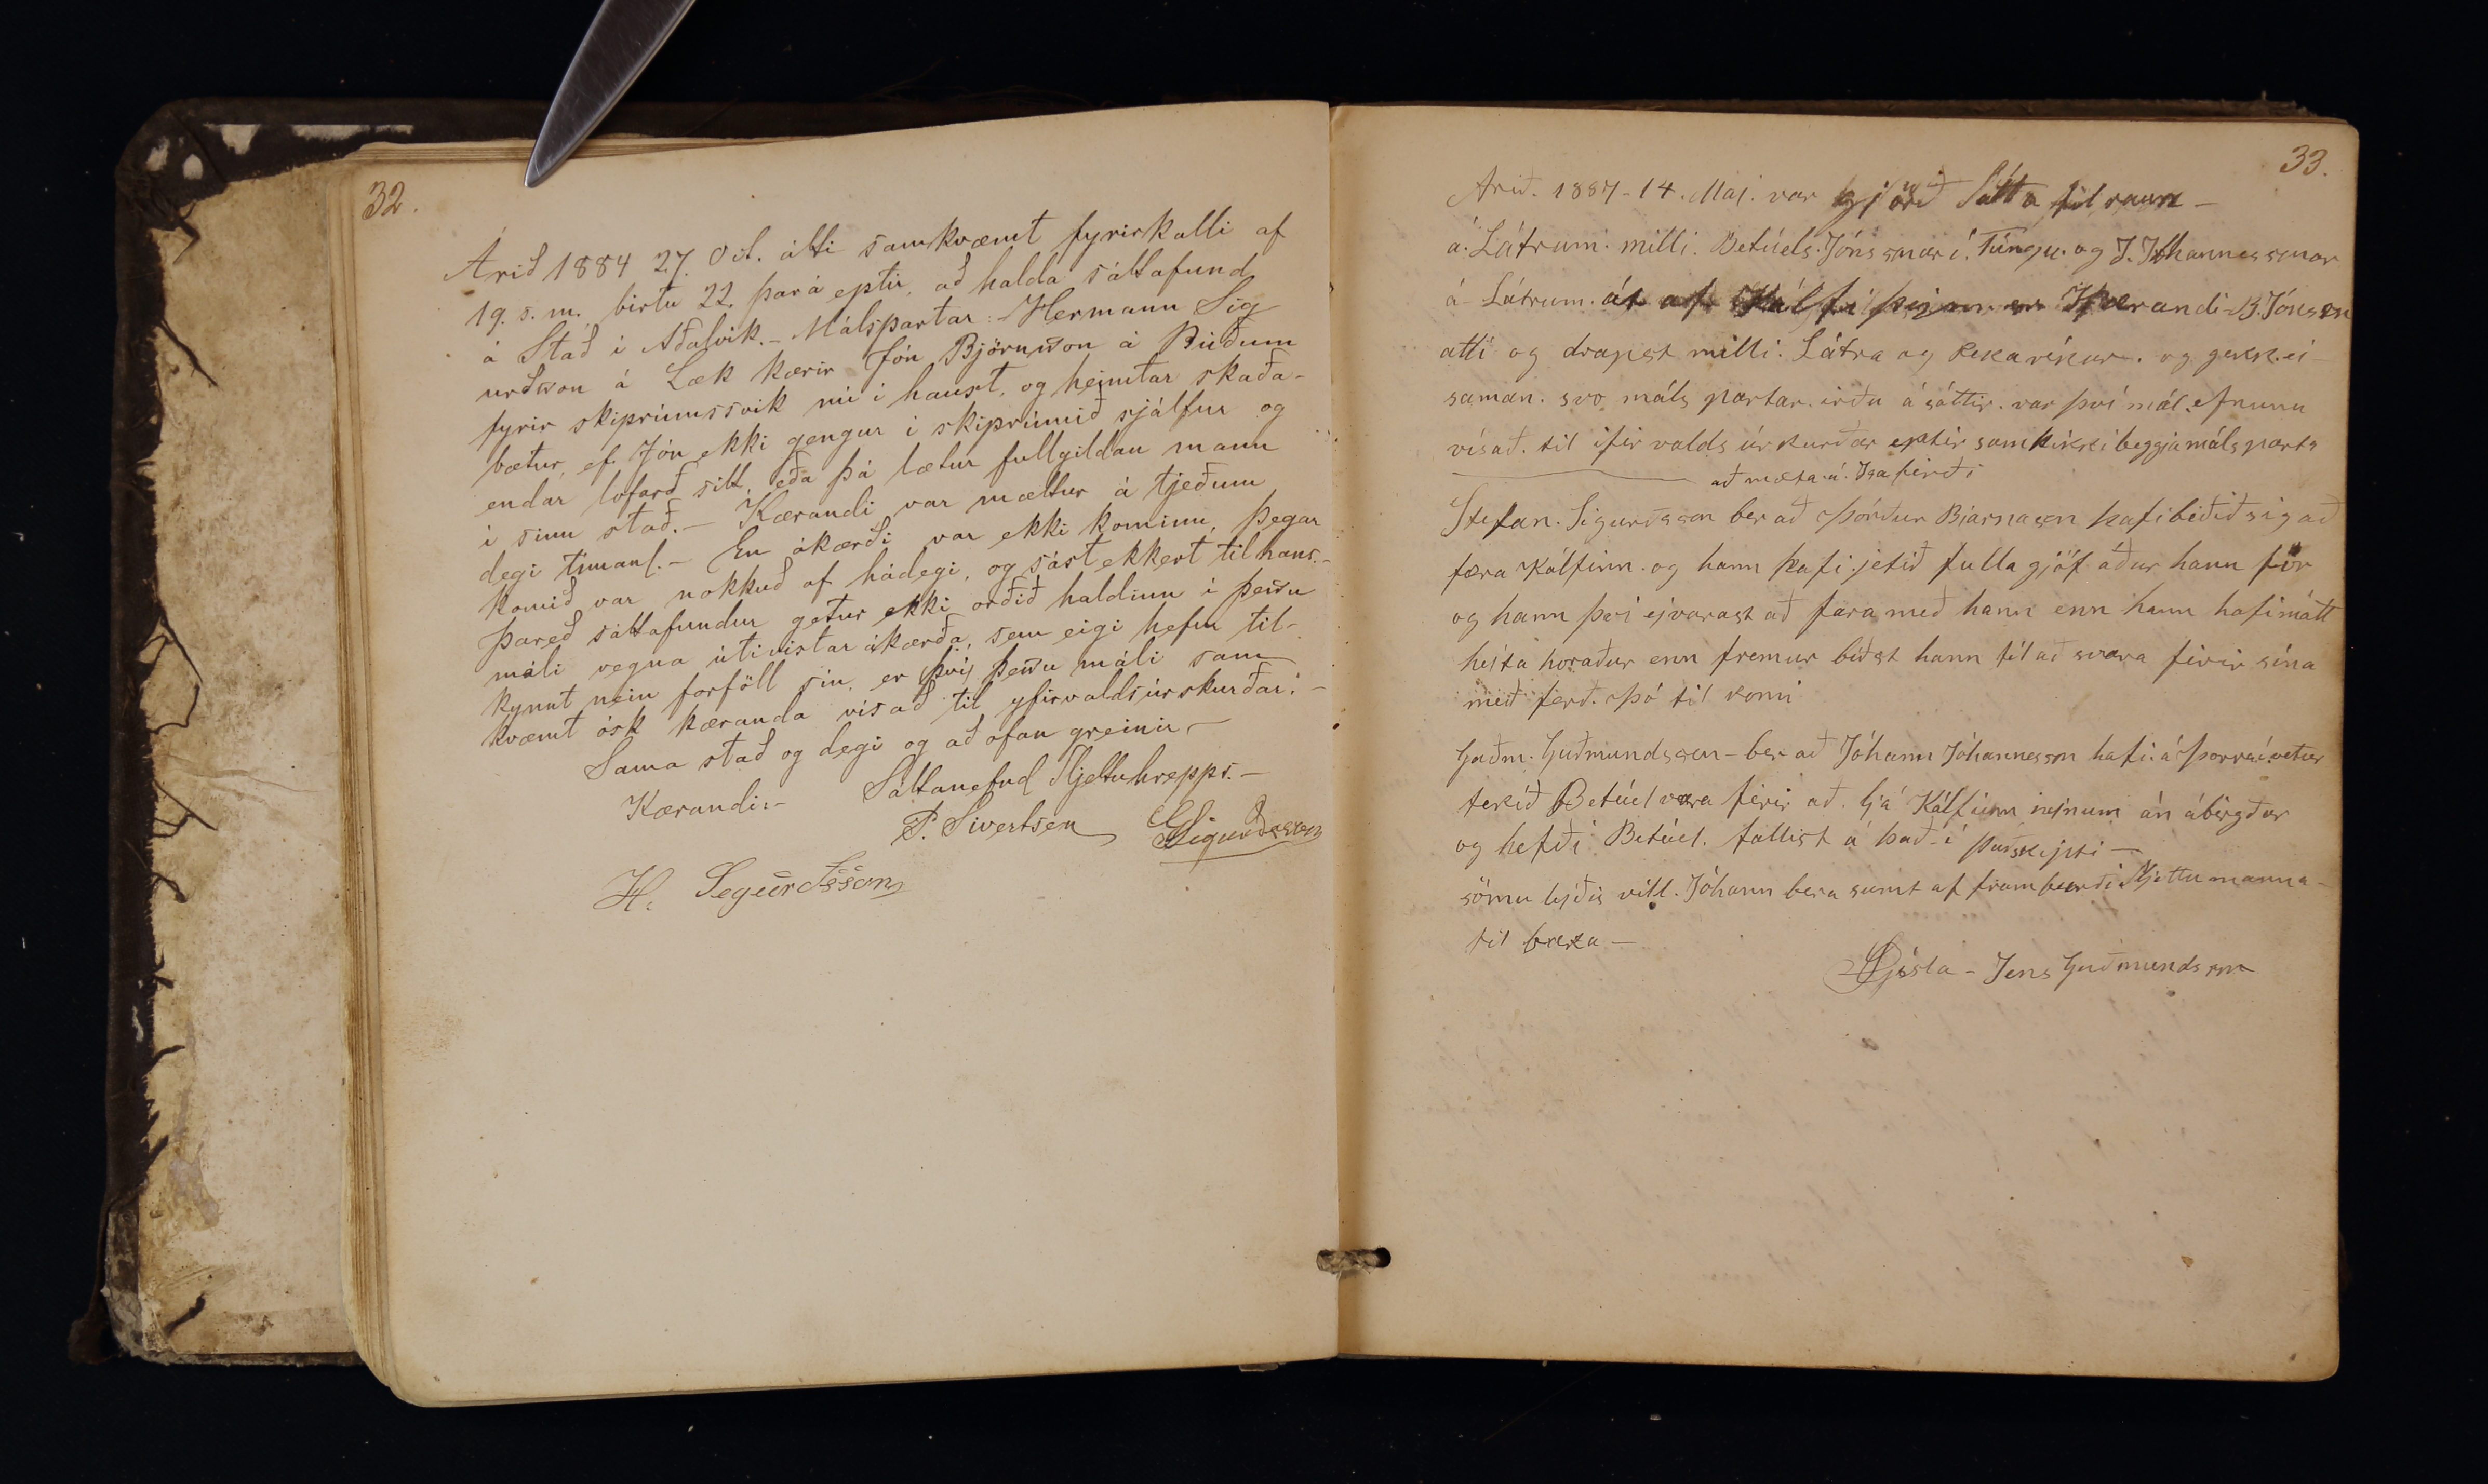 32.
Árið 1884 27. Oct. átti samkvæmt fyrirkalli af
19. s. m. birtu 22. þar á eptir, að halda sáttafund
á Stað í Aðalvík. - Málspartar: Hermann Sig-
urðsson á Læk kærir Jón Björnsson á Búðum
fyrir skiprúmssvik nú í haust, og heimtar skaða-
bætur, ef Jón ekki gengur í skiprúmið sjálfur og
endar loforð sitt, eða þá lætur fullgildan mann
í sinn stað. - Kærandi var mættur á tjeðum
degi tímanl. - En ákærði var ekki kominn, þegar
komið var nokkuð af hádegi, og sást ekkert til hans. -
Þareð sáttafundur getur ekki orðið haldinn í þessu
máli vegna útivistar ákærða, sem eigi hefur til-
kynnt nein forföll sín, er því þessu máli sam
kvæmt ósk kæranda vísað til yfirvaldsúrskurðar. -
Sama stað og degi og að ofan greinir -
Kærandi:- Sáttanefnd Sljettuhrepps. -
P. Sivertsen GSigurðsson
H. Segúrdsson
33.
Arið. 1887 - 14. Maj. var gjörð Sátta til raun -
á. Látrum. milli. Betúels. Jónssonar í. Túngu. og J. Jóhannessonar
á - Látrum. út af Kálfi þejm er Kærandi - B. Jónsson
atti og drapst milli. Látra og Rekavíkur. og gekk. ei -
saman. svo máls partar. irðu á sáttir. var því mál. efnunu
vísað. til ifir valds úrskurðar eptir samþikki beggja máls parta
að mæta. á. Isafirði
Stefan. Sigurðsson ber að Þórður Bjarnason hafi beðið sig að
færa Kálfinn. og hann hafi. jetið fulla gjöf áður hann fór
og hann því ejvarast að fara með hann enn hann hafi mátt
hejta horaður enn fremur bíðst hann til að svara firir sína
með ferð. Þó til komi
Guðm. Guðmundsson - ber að Jóhann Jóhannesson hafi. á Þorra í vetur
tekið Betúel vara firir að. ljá Kálfinn nejnum án ábirgðar
og hefði Betúel. fallist á það - í
sömu lejðis vill. Jóhann bera sumt af fram burði Sljettumanna -
til baka -
Gjósla - Jens Guðmundsson